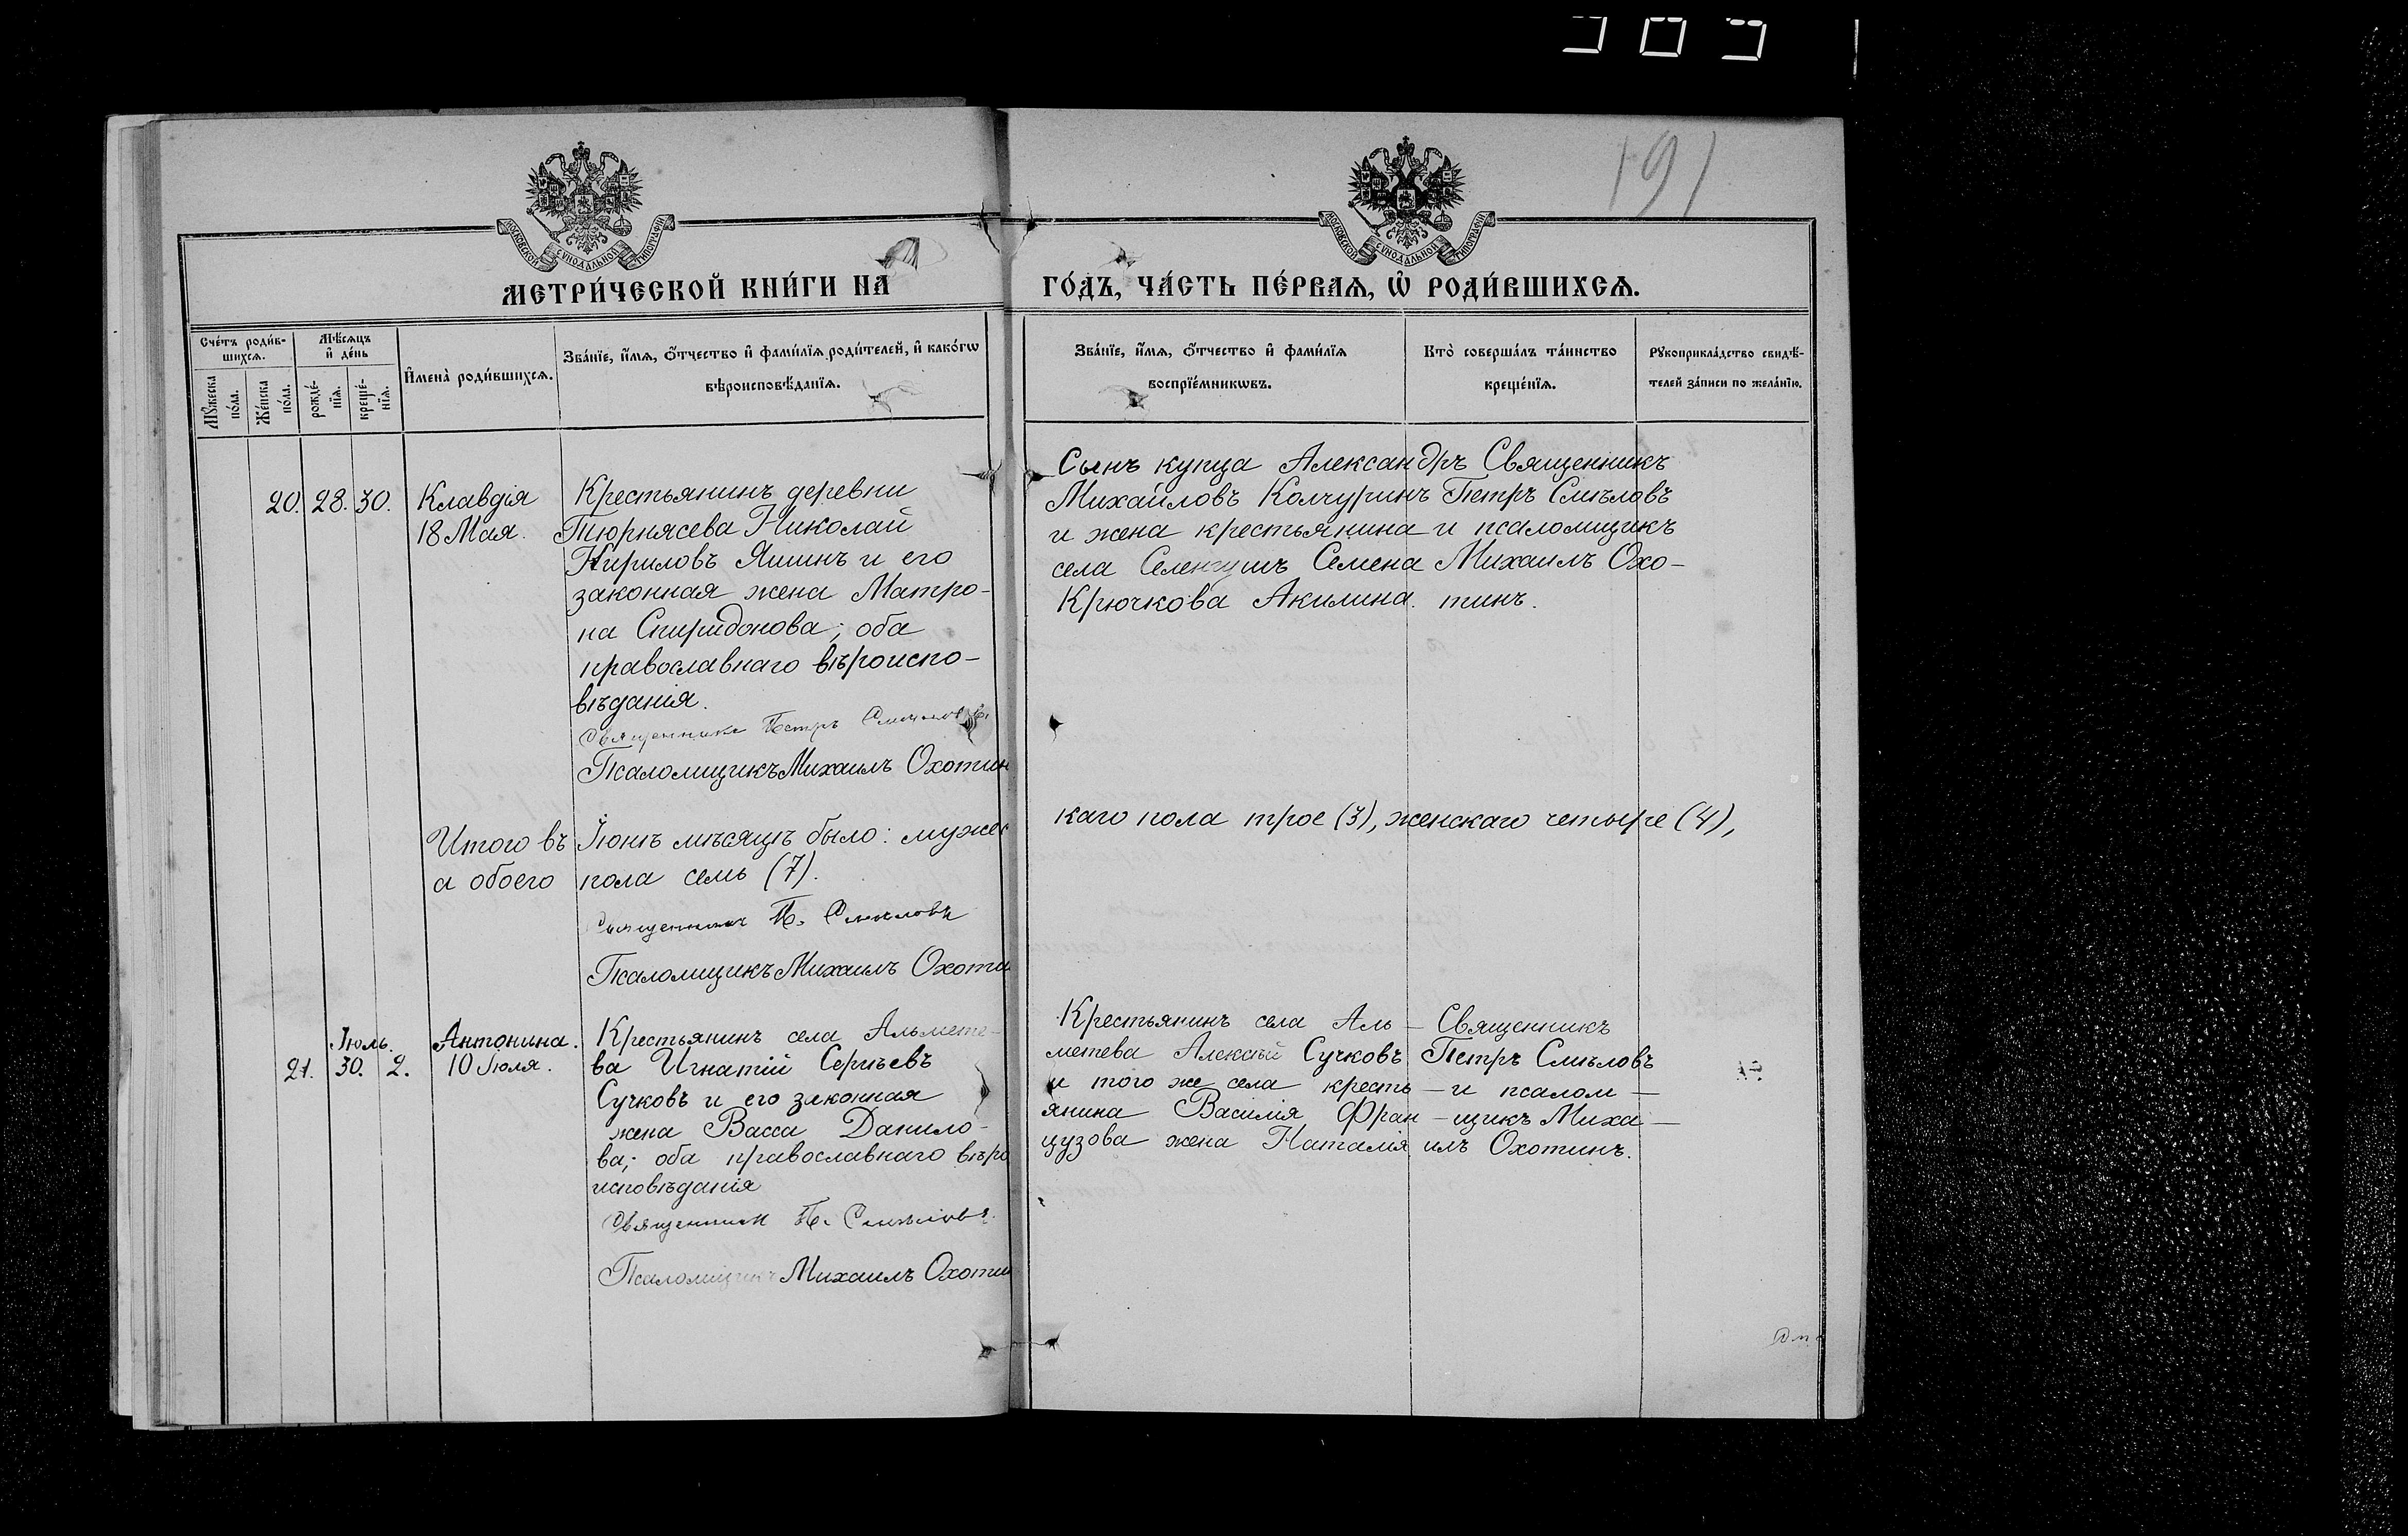 191
МОСКОВСКОЙ СѴНОДАЛЬНОЙ ТИПОГРАФІИ
МОСКОВСКОЙ СѴНОДАЛЬНОЙ ТИПОГРАФІИ
МЕТРИ́ЧЕСКОЙ КНИ́ГИ НА
ГО́ДЪ, ЧА́СТЬ ПЕ́РВАѦ, Ѡ҆ РОДИ́ВШИХСѦ.
Сче́тъ роди́в-
шихсѧ.
Мѣ́сяцъ
и҆ де́нь
Мꙋ́жеска
по́ла.
Же́нска
по́ла.
рожде́-
нїѧ.
креще́-
нїѧ.
И҆мена̀ роди́вшихсѧ.
Зва́нїе, и҆́мѧ, ѻ҆́тчество и҆ фами́лїѧ роди́телей, и҆ како́гѡ
вѣроисповѣ́данїѧ.
Зва́нїе, и҆́мѧ, ѻ҆́тчество и҆ фами́лїѧ
воспрїе́мникѡвъ.
Кто̀ соверша́лъ та́инство
креще́нїѧ.
Рꙋкоприкла́дство свидѣ́-
телей за́писи по жела́нїю.
20. 28. 30.
Клавдія
18 Мая.
Крестьянинъ деревни
Тюрнясева Николай
Кириловъ Яшинъ и его
законная жена Матро-
на Спиридонова; оба
православнаго вѣроиспо-
вѣданія.
Священникъ Петръ Смѣловъ
Псаломщикъ Михаилъ Охотин
Сынъ купца Александръ
Михайловъ Колчуринъ
и жена крестьянина
села Селенгушъ Семена
Крючкова Акилина.
Священникъ
Петръ Смѣловъ
и псаломщикъ
Михаилъ Охо-
тинъ.
Итого въ Іюнѣ мѣсяцѣ было: мужес
каго пола трое (3), женскаго четыре (4),
а обоего пола семь (7).
Священникъ П. Смѣловъ
Псаломщикъ Михаилъ Охоти
Іюль.
21. 30. 2.
Антонина.
10 Іюля.
Крестьянинъ села Альмете-
ва Игнатій Сергѣевъ
Сучковъ и его законная
жена Васса Данило-
ва; оба православнаго вѣро
исповѣданія
Священник П. Смѣловъ.
Псаломщикъ Михаилъ Охоти
Крестьянинъ села Аль-
метева Алексѣй Сучковъ
и того же села кресть-
янина Василія Фран-
цузова жена Наталія
Священникъ
Петръ Смѣловъ
и псалом-
щикъ Миха-
илъ Охотинъ.